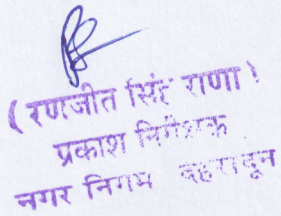 (रणजीत सिंह राणा)
प्रकाश निरीक्षक
नगर निगम देहरादून